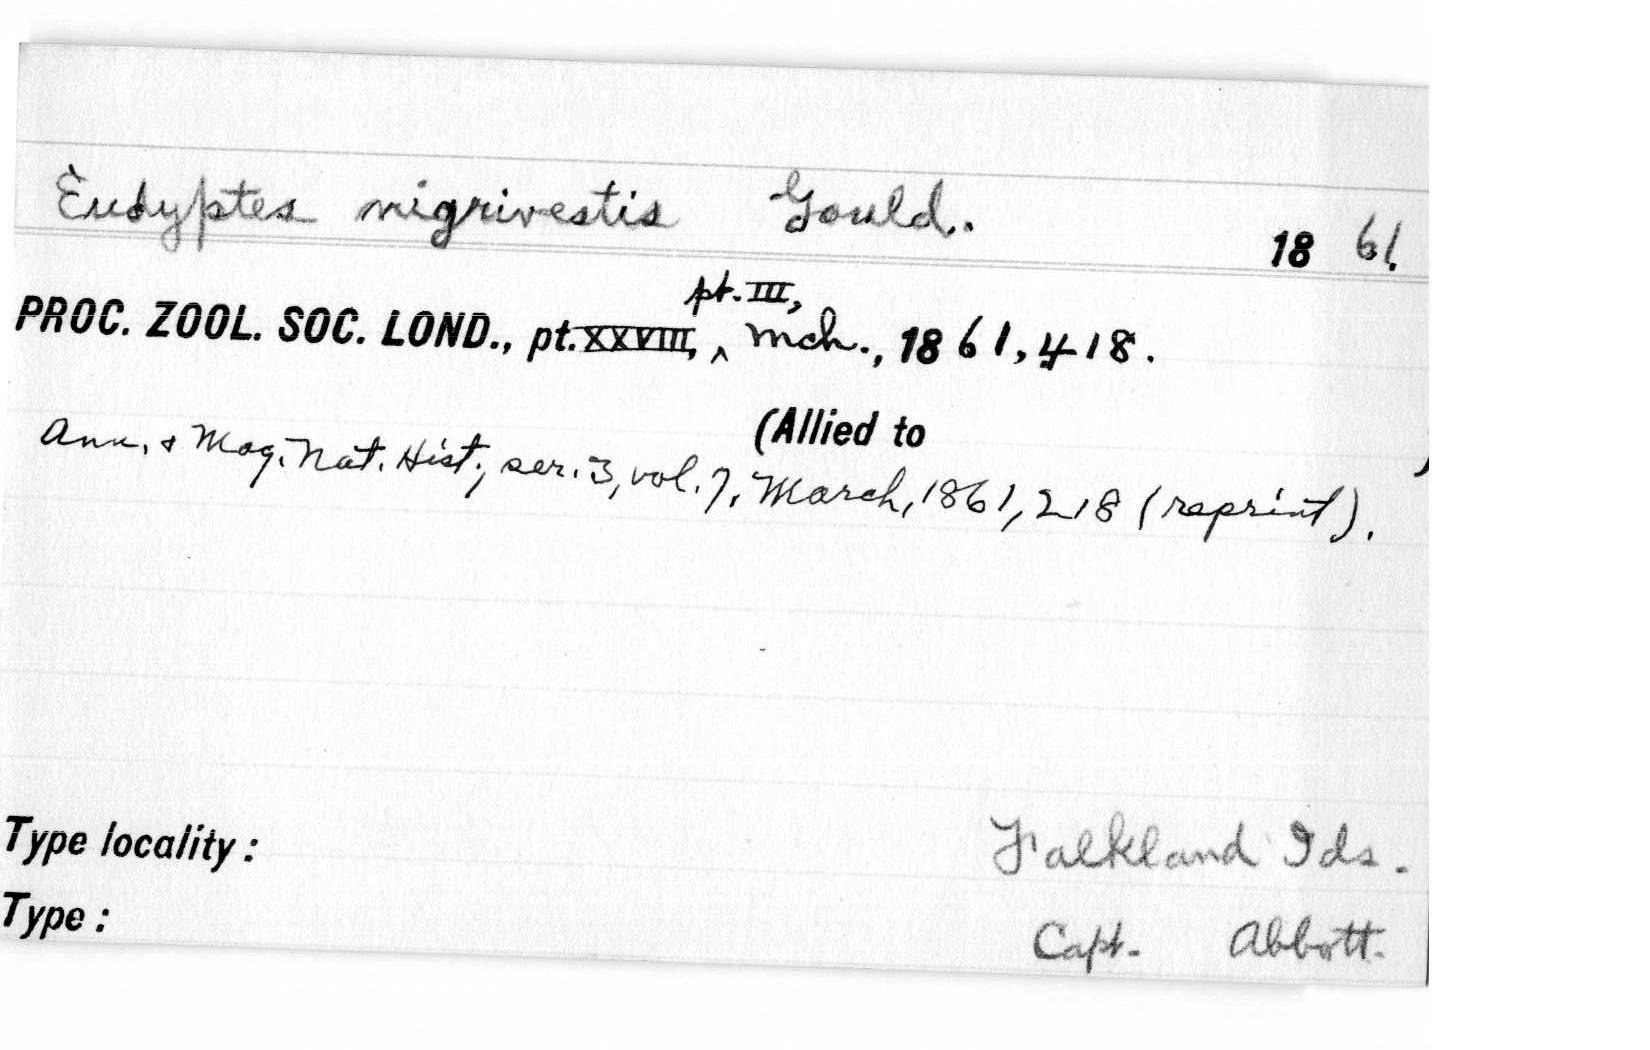 Eudyptes nigrivestis Gould. 1861.
pt. III,
PROC. ZOOL. SOC. LOND., pt. XXVIII, ‸ Mch., 1861, 418.
(Allied to )
Ann. & Mag. Nat. Hist., ser. 3, vol. 7, March, 1861, 218 (reprint).
Type locality: Falkland Ids.
Type: Capt. Abbott.